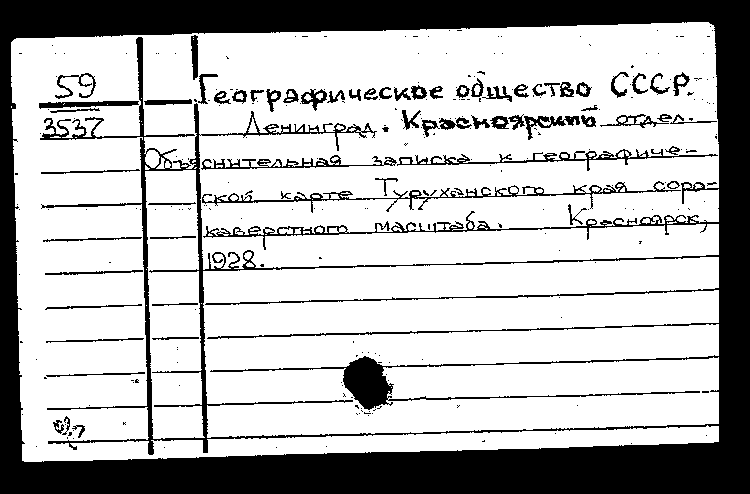 59
3537
Географическое общество СССР.
Ленинград. Красноярский отдел.
Объяснительная записка к географиче-
ской карте Туруханского края соро-
каверстного масштаба. Красноярск,
1928.